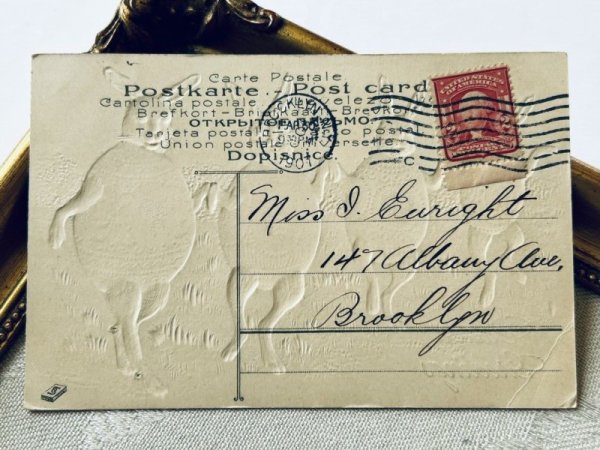 Carte Postale
Postkarte. - Post card
Cartolina postale
Brefkort - Briefkaart - Brevkort
ОТКРЫТОЕ ПИСЬМО
Tarjeta postal
Union postale universelle
Dopisnice.
UNITED STATES
OF AMERICA
Miss I. Enright
147 Albany Ave,
Brooklyn